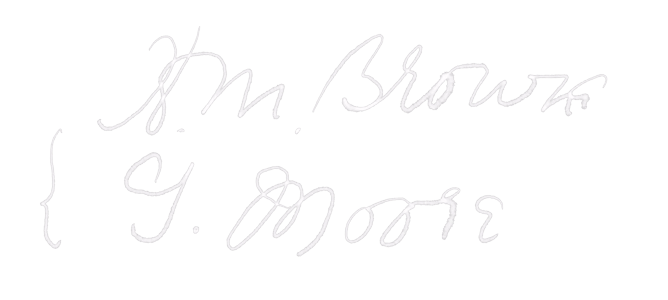 J. M. Brown
G. Moore